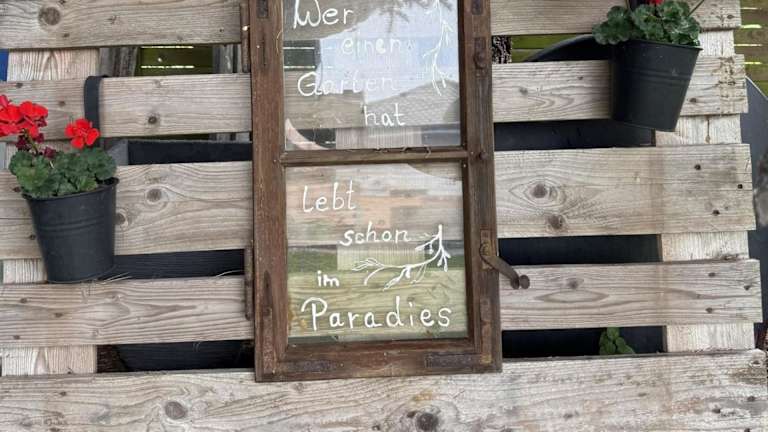 Wer
einen
Garten
hat
lebt
schon
im
Paradies